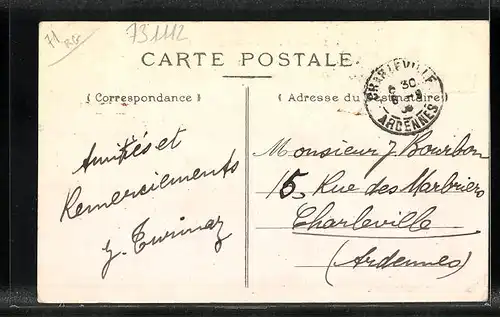 71
731112
CARTE POSTALE.
Correspondance
Adresse du Destinataire
CHARLEVILLE
30
ARDENNES
Amitiés et
Remerciements
Monsieur J Bourbon
15, Rue des Marbriers
Charleville
(Ardennes)